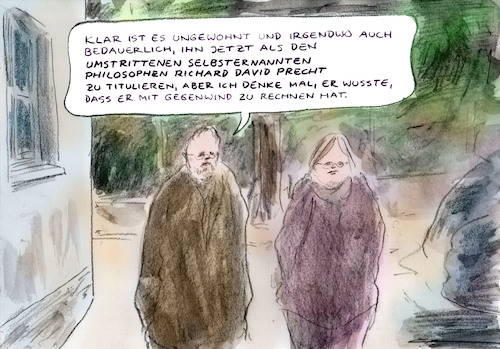 KLAR IST ES UNGEWOHNT UND IRGENDWO AUCH
BEDAUERLICH, IHN JETZT ALS DEN
UMSTRITTENEN SELBSTERNANNTEN
PHILOSOPHEN RICHARD DAVID PRECHT
ZU TITULIEREN, ABER ICH DENKE MAL, ER WUSSTE,
DASS ER MIT GEGENWIND ZU RECHNEN HAT.